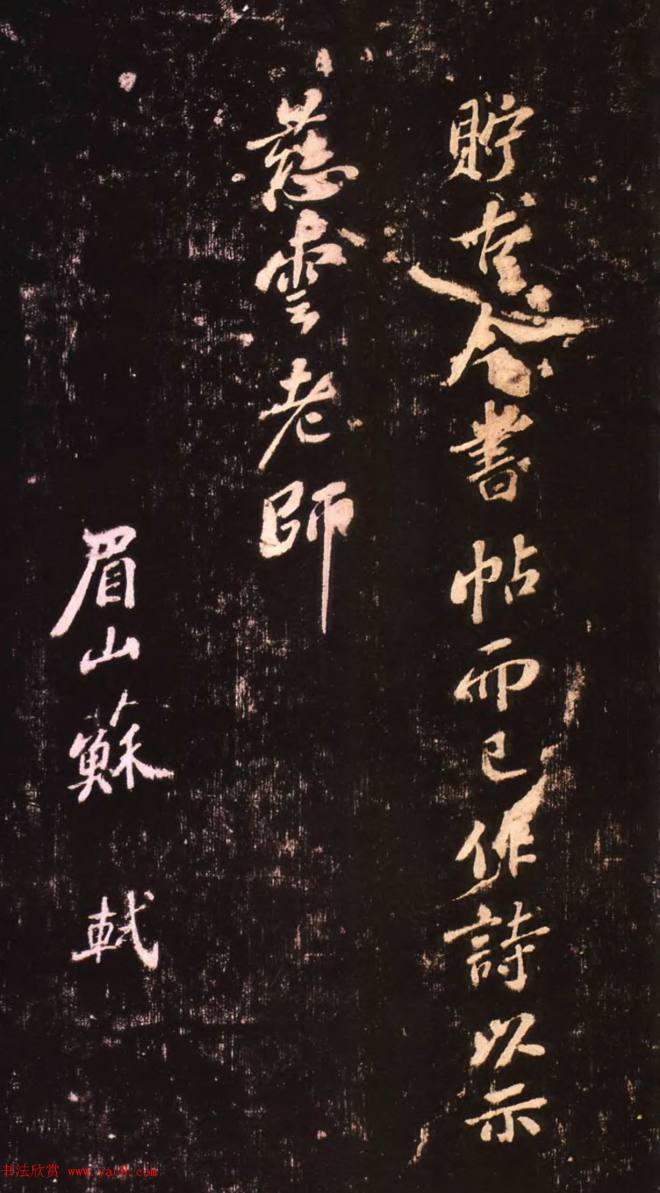 貯古今書帖而已作詩以示
慈雲老師
眉山蘇軾
书法欣赏 www.yac9.com